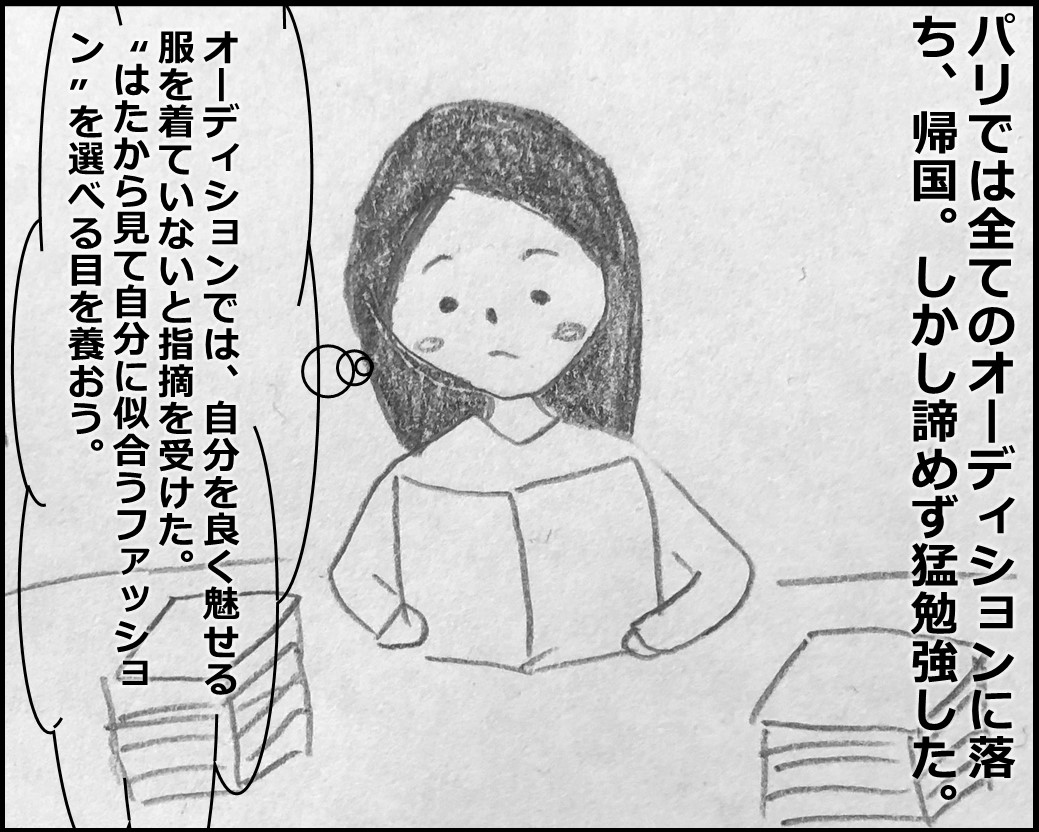 パリでは全てのオーディションに落
ち、帰国。しかし諦めず猛勉強した。
オーディションでは、自分を良く魅せる
服を着ていないと指摘を受けた。
〝はたから見て自分に似合うファッショ
ン〟を選べる目を養おう。